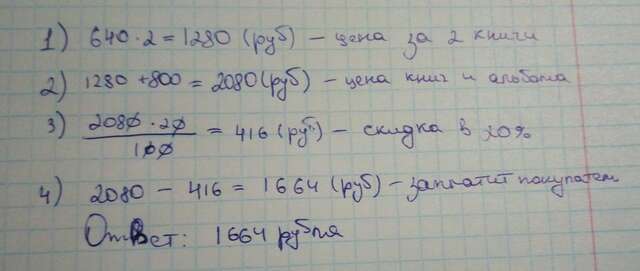 1) 640 · 2 = 1280 (руб) – цена за 2 книги
2) 1280 + 800 = 2080 (руб) – цена книг и альбома
3) 2080 · 20 / 100 = 416 (руб) – скидка в 20%
4) 2080 – 416 = 1664 (руб) – заплатит покупатель
Ответ: 1664 рубля